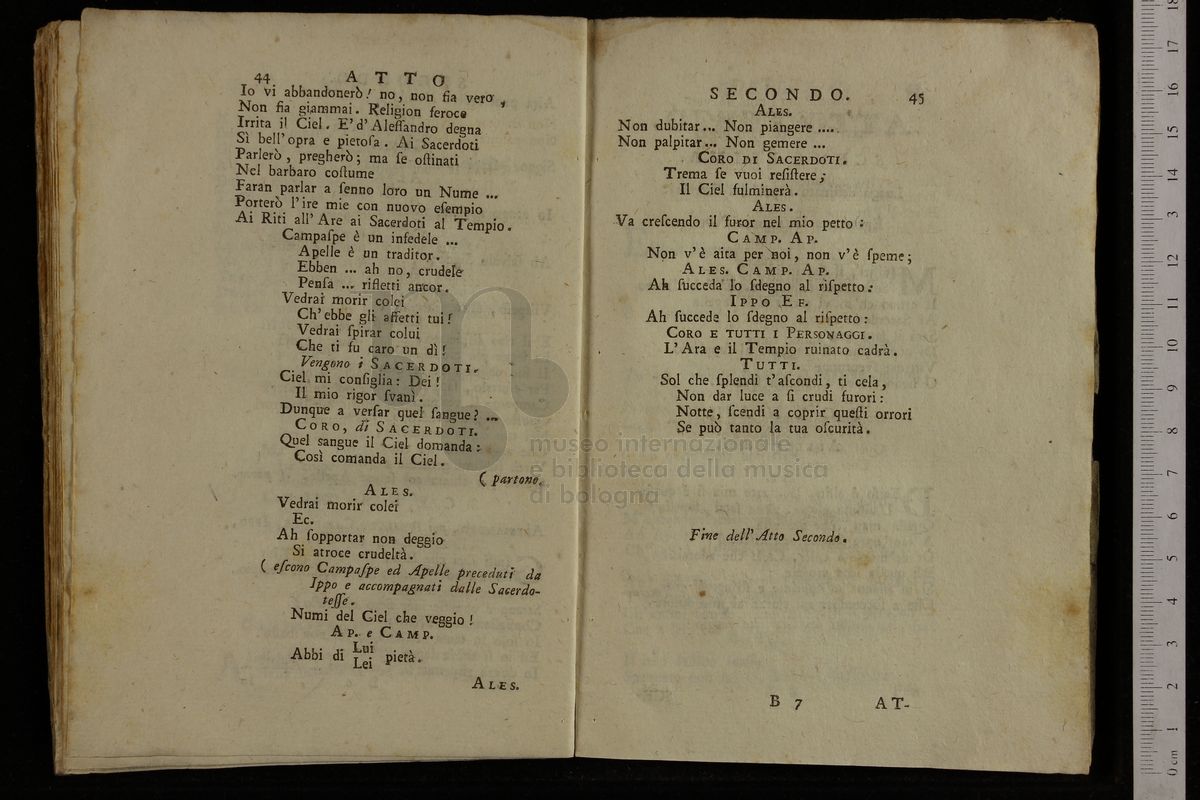 44 ATTO
Io vi abbandonerò! no, non fia vero,
Non fia giammai. Religion feroce
Irrita il Ciel. E' d' Aleſſandro degna
Sì bell' opra e pietoſa. Ai Sacerdoti
Parlerò, pregherò; ma ſe oſtinati
Nel barbaro coſtume
Faran parlar a ſenno loro un Nume ...
Porterò l' ire mie con nuovo eſempio
Ai Riti all' Are ai Sacerdoti al Tempio.
Campaſpe è un infedele ...
Apelle è un traditor.
Ebben ... ah no, crudele
Penſa ... rifletti ancor.
Vedrai morir colei
Ch' ebbe gli affetti tui!
Vedrai ſpirar colui
Che ti fu caro un dì!
Vengono i SACERDOTI.
Ciel mi conſiglia: Dei!
Il mio rigor ſvanì.
Dunque a verſar quel ſangue? ...
CORO, di SACERDOTI.
Quel sangue il Ciel domanda:
Così comanda il Ciel.
( partono.
ALES.
Vedrai morir colei
Ec.
Ah ſopportar non deggio
Si atroce crudeltà.
( eſcono Campaſpe ed Apelle preceduti da
Ippo e accompagnati dalle Sacerdo-
teſſe.
Numi del Ciel che veggio!
AP. e CAMP.
Abbi di Lui
Lei pietà.
ALES.
SECONDO. 45
ALES.
Non dubitar... Non piangere ....
Non palpitar... Non gemere ...
CORO DI SACERDOTI.
Trema ſe vuoi reſiſtere;
Il Ciel fulminerà.
ALES.
Va creſcendo il furor nel mio petto:
CAMP. AP.
Non v' è aita per noi, non v' è ſpeme;
ALES. CAMP. AP.
Ah ſucceda lo ſdegno al riſpetto:
IPPO EF.
Ah ſucceda lo ſdegno al riſpetto:
CORO E TUTTI I PERSONAGGI.
L' Ara e il Tempio ruinato cadrà.
TUTTI.
Sol che ſplendi t' aſcondi, ti cela,
Non dar luce a ſi crudi furori:
Notte, ſcendi a coprir queſti orrori
Se può tanto la tua oſcurità.
Fine dell' Atto Secondo.
B 7 AT-
museo internazionale
e biblioteca della musica
di bologna
0 cm 1 2 3 4 5 6 7 8 9 10 11 12 13 14 15 16 17 18